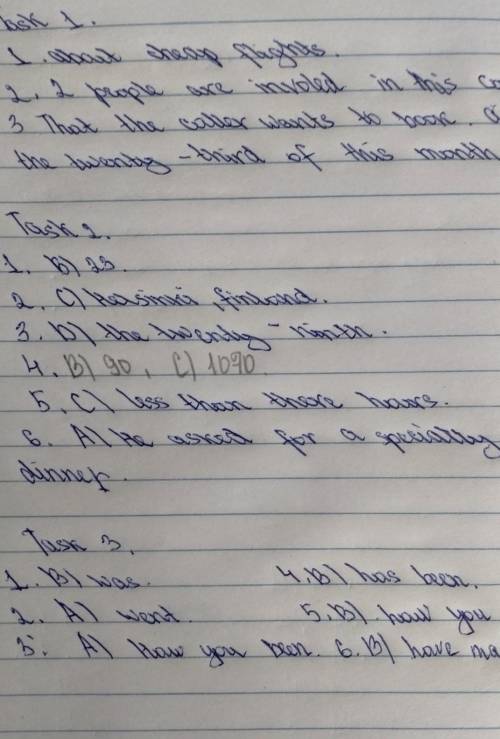 ask 1.
1. about cheap flights.
2. 2 people are involed in this co
3 That the caller wants to book.
the twenty-third of this month
Task 2.
1. B) 23.
2. C) Helsinki, finland.
3. D) the twenty-ninth.
4. B) 90. C) 1070.
5. C) less than there hours.
6. A) He asked for a specially
dinner.
Task 3.
1. B) was. 4. B) has been.
2. A) went. 5. B). have you
3. A) Have you been. 6. B) have ma